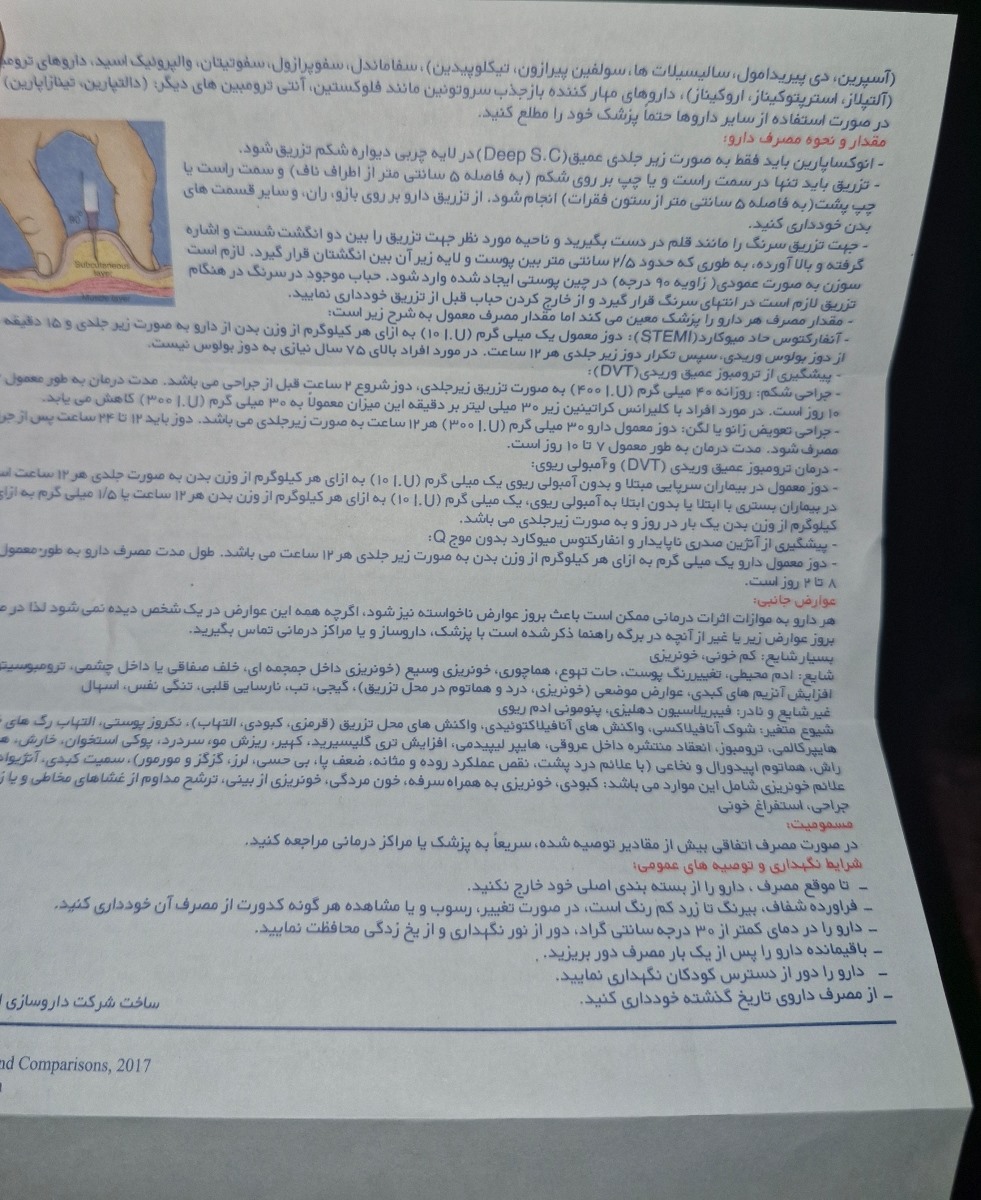 (آسپرین، دی پیریدامول، سالیسیلات ها، سولفین پیرازون، تیکلوپیدین)، سفاماندل، سفوپرازول، سفوتیتان، والپروئیک اسید، داروهای
(آلتپلاز، استرپتوکیناز، اروکیناز)، داروهای مهار کننده بازجذب سروتونین مانند فلوکستین، آنتی ترومبین های دیگر: (دالتپارین، تینزاپارین)
در صورت استفاده از سایر داروها حتماً پزشک خود را مطلع کنید.
مقدار و نحوه مصرف دارو:
- انوکساپارین باید فقط به صورت زیر جلدی عمیق(Deep S.C) در لایه چربی دیواره شکم تزریق شود.
- تزریق باید تنها در سمت راست و یا چپ بر روی شکم (به فاصله ۵ سانتی متر از اطراف ناف) و سمت راست یا
چپ پشت(به فاصله ۵ سانتی متر از ستون فقرات) انجام شود. از تزریق دارو بر روی بازو، ران، و سایر قسمت های
بدن خودداری کنید.
- جهت تزریق سرنگ را مانند قلم در دست بگیرید و ناحیه مورد نظر جهت تزریق را بین دو انگشت شست و اشاره
گرفته و بالا آورده، به طوری که حدود ۲/۵ سانتی متر بین پوست و لایه زیر آن بین انگشتان قرار گیرد. لازم است
سوزن به صورت عمودی( زاویه ۹۰ درجه) در چین پوستی ایجاد شده وارد شود. حباب موجود در سرنگ در هنگام
تزریق لازم است در انتهای سرنگ قرار گیرد و از خارج کردن حباب قبل از تزریق خودداری نمایید.
90°
Subcutaneous
layer
Muscle layer
- مقدار مصرف هر دارو را پزشک معین می کند اما مقدار مصرف معمول به شرح زیر است:
- آنفارکتوس حاد میوکارد(STEMI): دوز معمول یک میلی گرم (۱۰ I.U) به ازای هر کیلوگرم از وزن بدن از دارو به صورت زیر جلدی و ۱۵ دقیقه
از دوز بولوس وریدی، سپس تکرار دوز زیر جلدی هر ۱۲ ساعت. در مورد افراد بالای ۷۵ سال نیازی به دوز بولوس نیست.
- پیشگیری از ترومبوز عمیق وریدی(DVT):
- جراحی شکم: روزانه ۴۰ میلی گرم (۴۰۰ I.U) به صورت تزریق زیرجلدی، دوز شروع ۲ ساعت قبل از جراحی می باشد. مدت درمان به طور معمول
۱۰ روز است. در مورد افراد با کلیرانس کراتینین زیر ۳۰ میلی لیتر بر دقیقه این میزان معمولاً به ۳۰ میلی گرم (۳۰۰ I.U) کاهش می یابد.
- جراحی تعویض زانو یا لگن: دوز معمول دارو ۳۰ میلی گرم (۳۰۰ I.U) هر ۱۲ ساعت به صورت زیرجلدی می باشد. دوز باید ۱۲ تا ۲۴ ساعت پس از
مصرف شود. مدت درمان به طور معمول ۷ تا ۱۰ روز است.
- درمان ترومبوز عمیق وریدی (DVT) و آمبولی ریوی:
- دوز معمول در بیماران سرپایی مبتلا و بدون آمبولی ریوی یک میلی گرم (۱۰ I.U) به ازای هر کیلوگرم از وزن بدن به صورت جلدی هر ۱۲ ساعت
در بیماران بستری با ابتلا یا بدون ابتلا به آمبولی ریوی، یک میلی گرم (۱۰ I.U) به ازای هر کیلوگرم از وزن بدن هر ۱۲ ساعت یا ۱/۵ میلی گرم به ازای
کیلوگرم از وزن بدن یک بار در روز و به صورت زیرجلدی می باشد.
- پیشگیری از آنژین صدری ناپایدار و انفارکتوس میوکارد بدون موج Q:
- دوز معمول دارو یک میلی گرم به ازای هر کیلوگرم از وزن بدن به صورت زیر جلدی هر ۱۲ ساعت می باشد. طول مدت مصرف دارو به طور معمول
۸ تا ۲ روز است.
عوارض جانبی:
هر دارو به موازات اثرات درمانی ممکن است باعث بروز عوارض ناخواسته نیز شود، اگرچه همه این عوارض در یک شخص دیده نمی شود لذا در
بروز عوارض زیر یا غیر از آنچه در برگه راهنما ذکر شده است با پزشک، داروساز و یا مراکز درمانی تماس بگیرید.
بسیار شایع: کم خونی، خونریزی
شایع: ادم محیطی، تغییررنگ پوست، حات تهوع، هماچوری، خونریزی وسیع (خونریزی داخل جمجمه ای، خلف صفاقی یا داخل چشمی،
افزایش آنزیم های کبدی، عوارض موضعی (خونریزی، درد و هماتوم در محل تزریق)، گیجی، تب، نارسایی قلبی، تنگی نفس، اسهال
غیر شایع و نادر: فیبریلاسیون دهلیزی، پنومونی ادم ریوی
شیوع متغیر: شوک آنافیلاکسی، واکنش های آنافیلاکتوئیدی، واکنش های محل تزریق (قرمزی، کبودی، التهاب)، نکروز پوستی، التهاب رگ های
هایپرکالمی، ترومبوز، انعقاد منتشره داخل عروقی، هایپر لیپیدمی، افزایش تری گلیسیرید، کهیر، ریزش مو، سردرد، پوکی استخوان، خارش،
راش، هماتوم اپیدورال و نخاعی (با علائم درد پشت، نقص عملکرد روده و مثانه، ضعف پا، بی حسی، لرز، گزگز و مورمور)، سمیت کبدی،
علائم خونریزی شامل این موارد می باشد: کبودی، خونریزی به همراه سرفه، خون مردگی، خونریزی از بینی، ترشح مداوم از غشاهای مخاطی و یا
جراحی، استفراغ خونی
مسمومیت:
در صورت مصرف اتفاقی بیش از مقادیر توصیه شده، سریعاً به پزشک یا مراکز درمانی مراجعه کنید.
شرایط نگهداری و توصیه های عمومی:
– تا موقع مصرف ، دارو را از بسته بندی اصلی خود خارج نکنید.
– فراورده شفاف، بیرنگ تا زرد کم رنگ است، در صورت تغییر، رسوب و یا مشاهده هر گونه کدورت از مصرف آن خودداری کنید.
– دارو را در دمای کمتر از ۳۰ درجه سانتی گراد، دور از نور نگهداری و از یخ زدگی محافظت نمایید.
– باقیمانده دارو را پس از یک بار مصرف دور بریزید.
– دارو را دور از دسترس کودکان نگهداری نمایید.
– از مصرف داروی تاریخ گذشته خودداری کنید.
ساخت شرکت داروسازی
Comparisons, 2017